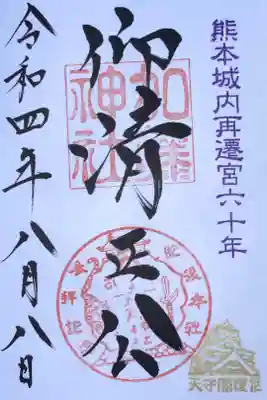 熊本城内再遷宮六十年
仰清正公
加藤神社
令和四年八月八日
天守閣復旧